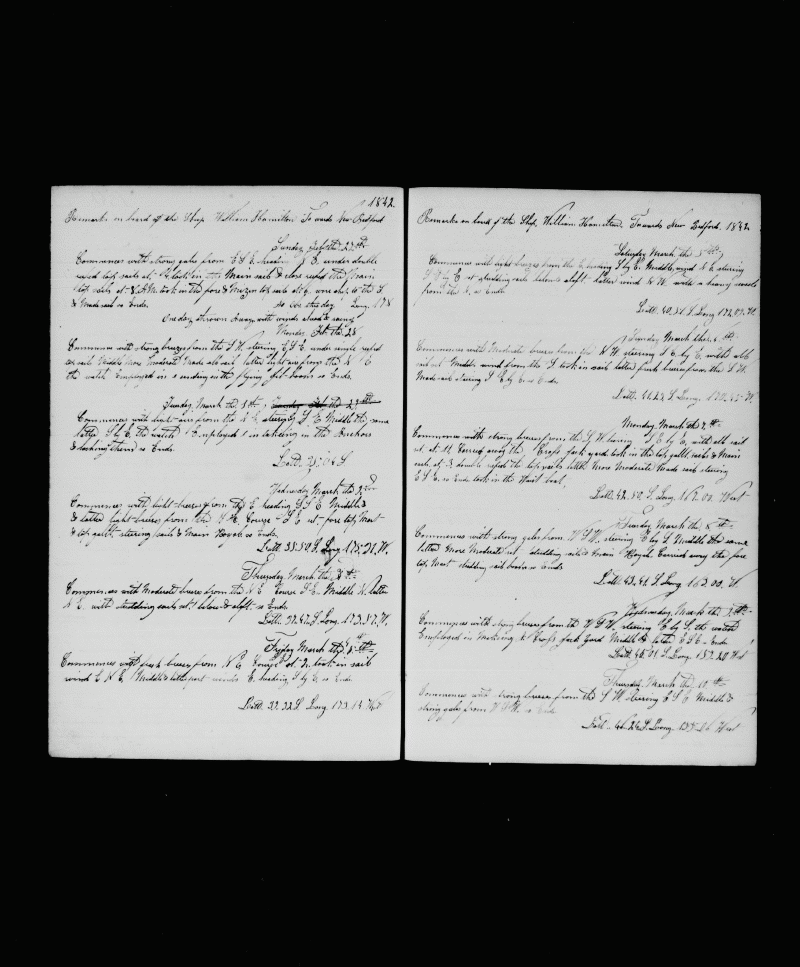 1842.
Remarks on board of the Ship William Hamilton Towards New Bedford
Sunday Feb the 27th
Commences with strong gales from E S E heading S E under double
reefed top sails at took in the Main sail & close reefed the Main
top sails at 8 P M took in the fore & Mizen top sails at 6 wore ship to the S
& Made sail so Ends. No Obs this day Long 178
One day thrown away with winds ahead &
Monday Feb the 28
Commences with strong breezes from the S W steering E S E under single reefed
top sails Middle More Moderate Made all sail latter light airs from the N E
the watch Employed in sending in the flying Jib boom so Ends.
Tuesday March the 1th
Commences with light airs from the N E steering S E Middle the same
latter S by E the watch Employed in taking in the Anchors
& lashing them so Ends.
Latt. S
Wednesday March the 2nd
Commences with light breeze from the E heading S S E Middle
& latter light breeze from the N E Course S E set fore top Mast
& top gallt steering sails & Main Royal so Ends.
Latt 38.50 S. Long 175.21. W.
Thursday March the 3th
Commences with Moderate breeze from the N E Course S E Middle N. latter
N E. with studding sails set below & aloft so Ends.
Latt. S Long. 173.57. W.
Fryday March the 4th
Commences with fresh breeze from N E Course at 2 took in sail
wind E N E, Middle & latter part wind E. heading S by E so Ends.
Latt. S Long 173.14 West
Remarks on board of the Ship William Hamilton. Towards New Bedford. 1842
Saturday March the 5th
Commences with light breezes from the E heading S by E. Middle wind N E steering
S E by E set studding sails below & aloft. latter wind N W with a heavy swell
from the S, so Ends.
Latt. 40.31 S Long 172.07. W.
Sunday March the 6th
Commences with Moderate breeze from the N W steering S E by E. with all
sail set Middle wind from the S took in sail latter fresh breeze from the S W.
Made sail steering S E by E so Ends.
Latt. 41.23. S. Long. W.
Monday March the 7th
Commences with strong breeze from the S W steering S E by E, with all sail
set at 11 Carried away the Cross jack yard took in the top gallt. sails & Main
sail, at 3 double reefed the top sails latter More Moderate Made sail steering
E S E. so Ends took in the Waist boat.
Latt. 42.50. S. Long 162.00. West
Tuesday March the 8th
Commences with strong gales from W S W. steering E by S Middle the same
latter More Moderate set studding sails & Main Royal. Carried away the fore
top Mast studding sail boom so Ends
Latt. 43.41. S. Long 162.00. W
Wednesday, March the 9th
Commences with strong breezes from the W S W. steering E by S, the watch
Employed in Making a Cross jack yard Middle & latter E S E - Ends.
Latt. 45.01. S. Long. West
Thursday, March the 10th
Commences with strong breeze from the S W. steering E S E Middle &
strong gales from W S W. so Ends
Latt - 46.24. S. Long. West